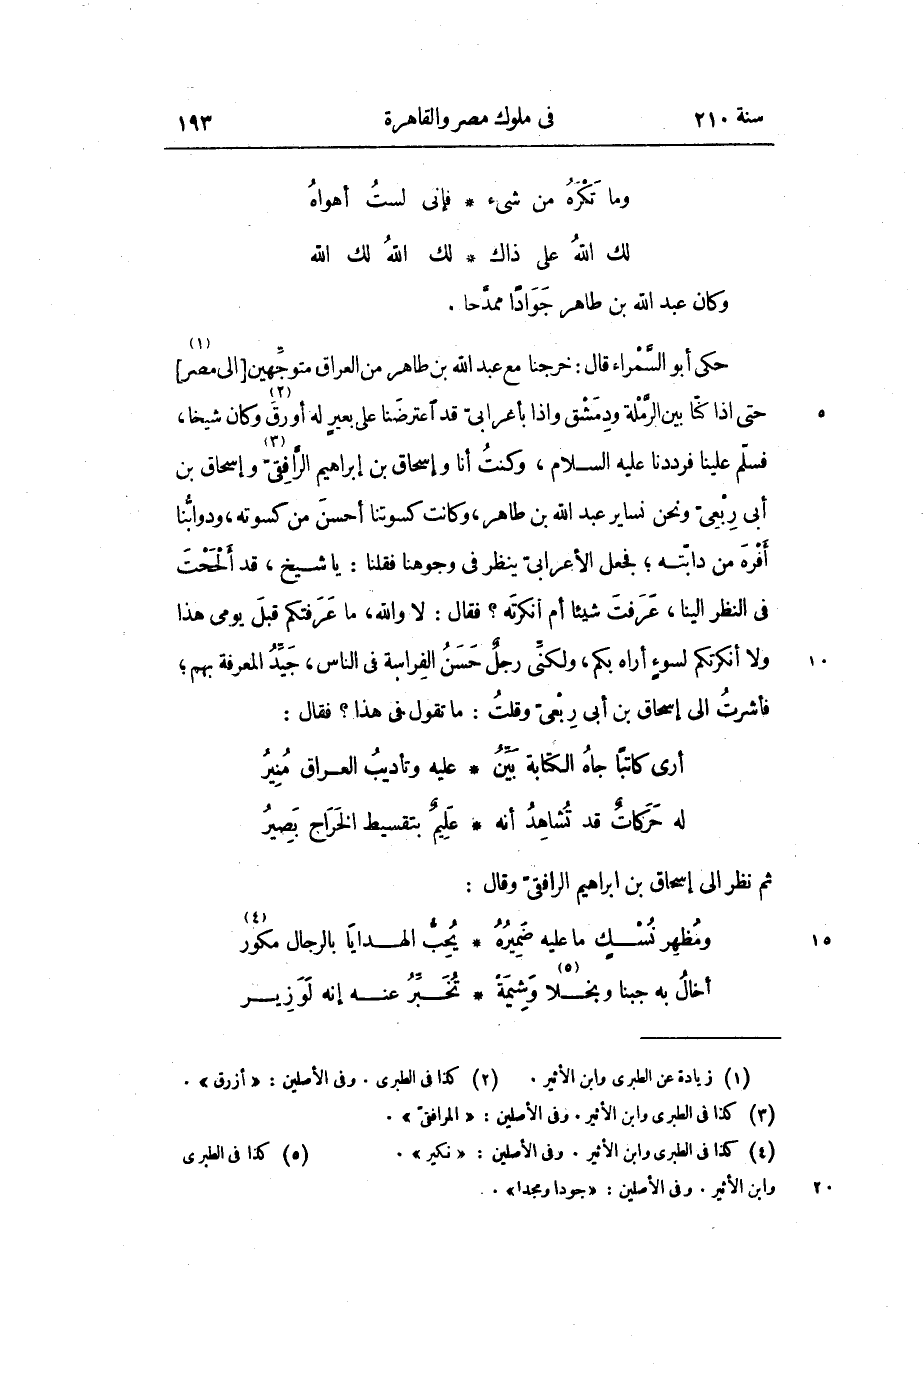 سنة ٢١٠ فى ملوك مصر والقاهرة ١٩٣
وما تَكْرَهُ من شىء * فإنى لستُ أهواهُ
لك اللهُ على ذاك * لك اللهُ لك الله
وكان عبد الله بن طاهر جَوَادًا ممدَّحا .
حكى أبو السَّمْراء قال : خرجنا مع عبد الله بن طاهر من العراق متوجِّهين [الى مصر] (١)
حتى اذا كنّا بين الرَّمْلة ودِمَشْق واذا بأعرابىّ قد اعترضَنا على بعيرٍ له أورقَ (٢) وكان شيخا، ٥
فسلّم علينا فرددنا عليه السلام ، وكنتُ أنا وإسحاق بن إبراهيم الرَّافِقىّ (٣) وإسحاق بن
أبى رِبْعىّ ونحن نساير عبد الله بن طاهر، وكانت كسوتنا أحسنَ من كسوته، ودوابُّنا
أَفْرهَ من دابّته ؛ فجعل الأعرابىّ ينظر فى وجوهنا فقلنا : يا شيخ ، قد أَلْحَحْتَ
فى النظر الينا ، عَرَفتَ شيئا أم أنكرتَه ؟ فقال : لا والله، ما عَرَفتكم قبلَ يومى هذا
ولا أنكرتكم لسوءٍ أراه بكم، ولكنّى رجلٌ حَسَنُ الفِراسة فى الناس، جَيِّدُ المعرفة بهم ؛ ١٠
فأشرتُ الى إسحاق بن أبى رِبْعىّ وقلتُ : ما تقول فى هذا ؟ فقال :
أرى كاتبًا جاهُ الكتابة بَيِّنُ * عليه وتأديبُ العراق مُنِيرُ
له حَرَكاتٌ قد تُشاهِدُ أنه * عَلِيمٌ بتقسيط الخَرَاج بَصِيرُ
ثم نظر الى إسحاق بن ابراهيم الرافقىّ وقال :
ومُظهِر نُسْكٍ ما عليه ضَمِيرُهُ * يُحِبُّ الهدايَا بالرجال مكور (٤) ١٥
أخالُ به جبنا وبخلا (٥) وَشِيمَةً * تُخَبِّرُ عنه إنه لَوَزِير
(١) زيادة عن الطبرى وابن الأثير . (٢) كذا فى الطبرى . وفى الأصلين : « أزرق » .
(٣) كذا فى الطبرى وابن الأثير . وفى الأصلين : « المرافقىّ » .
(٤) كذا فى الطبرى وابن الأثير . وفى الأصلين : « نكير » . (٥) كذا فى الطبرى
وابن الأثير . وفى الأصلين : «جودا ومجدا» . ٢٠